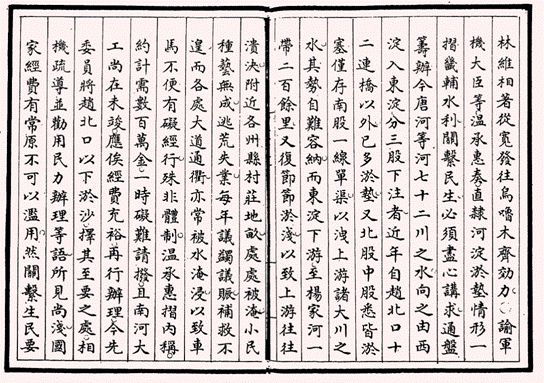 林維相著從寬發往烏嚕木齊効力○諭軍
機大臣等溫承惠奏直隸河淀淤墊情形一
摺畿輔水利關繫民生必須盡心講求通盤
籌辦今唐河等河七十二川之水向之由西
淀入東淀分三股下注者近年自趙北口十
二連橋以外已多淤墊又北股中股悉皆淤
塞僅存南股一線單渠以洩上游諸大川之
水其勢自難容納而東淀下游至楊家河一
帶二百餘里又復節節淤淺以致上游往往
潰決附近各州縣村莊地畝處處被淹小民
種藝無成逃荒失業每年議蠲議賑補救不
遑而各處大道通衢亦常被水淹浸以致車
馬不便有礙經行殊非體制溫承惠摺內稱
約計需數百萬金一時礙難請撥且南河大
工尚在未竣應俟經費充裕再行辦理今先
委員將趙北口以下淤沙擇其至要之處相
機疏導並勸用民力辦理等語所見尚淺國
家經費有常原不可以濫用然關繫生民要